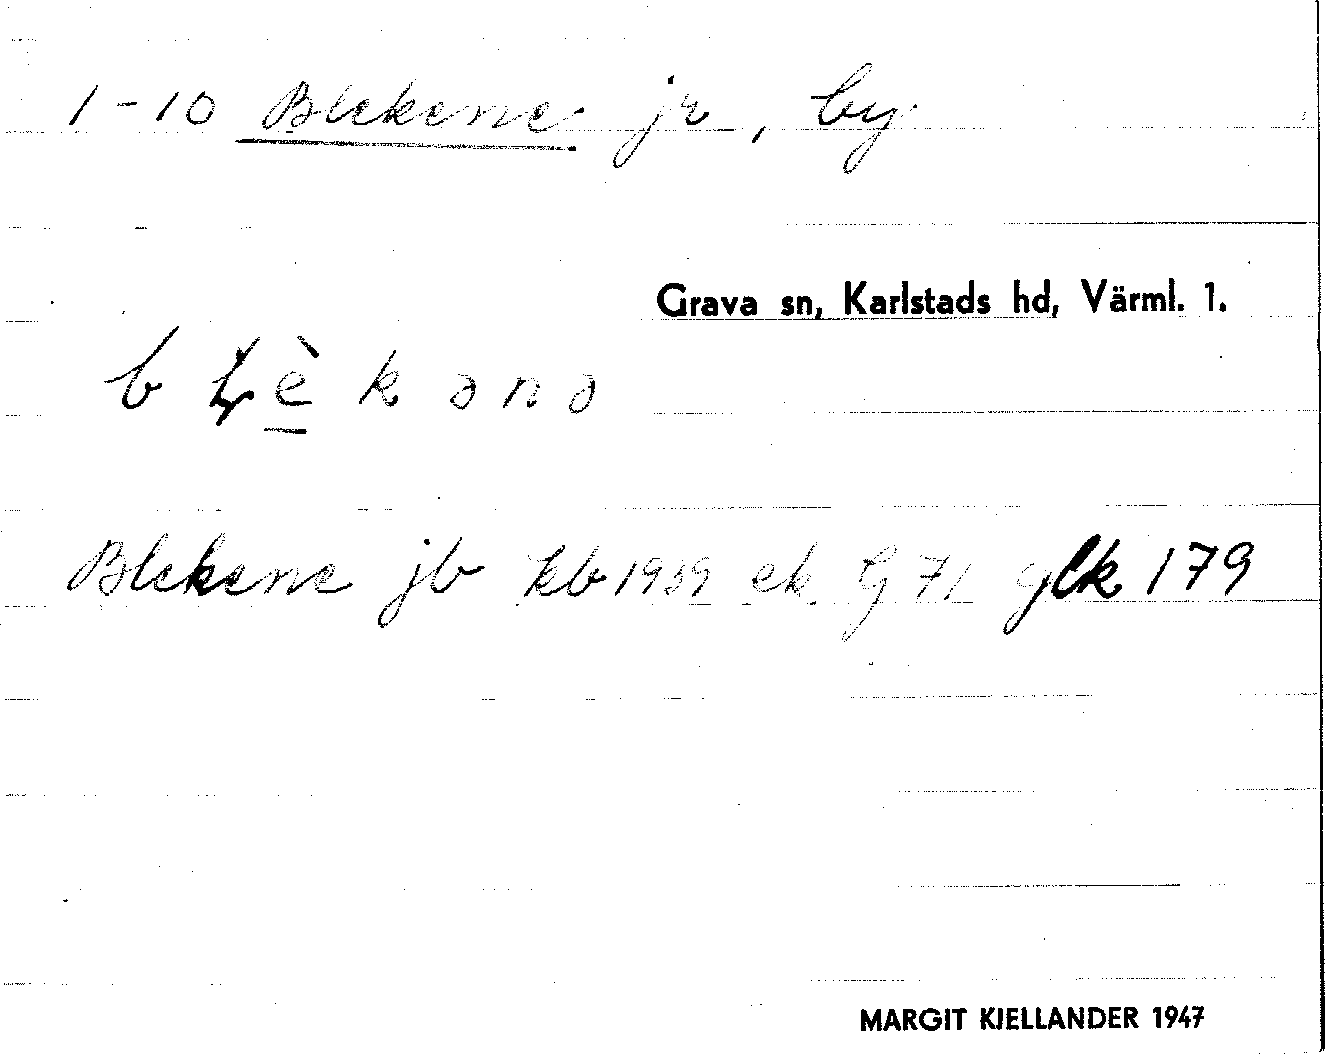 1-10 Blekene jr, by.
Grava sn, Karlstads hd, Värml. 1.
b ɽ è k ə n ə
Blekene jb kb 1939 ek G 71 glk 179
MARGIT KJELLANDER 1947